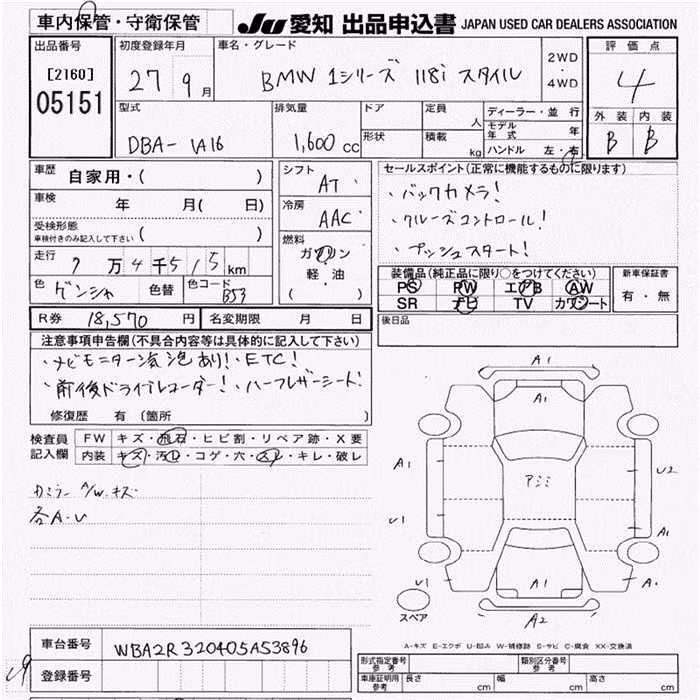 車内保管・守衛保管
JU 愛知 出品申込書 JAPAN USED CAR DEALERS ASSOCIATION
出品番号
[2160]
05151
初度登録年月
27 9月
車名・グレード
BMW 1シリーズ 118i スタイル
2WD
・
4WD
評価点
4
外装 内装
B B
型式
DBA- 1A16
排気量
1,600 cc
ドア
形状
定員 人
積載 kg
ディーラー・並行
モデル年式 年
ハンドル 左・右
車歴 自家用・( )
車検 年 月( 日)
受検形態
車検付きのみ記入して下さい ( )
走行 7万4千515km
色 ゲンシャ 色替 色コード B53
シフト
AT
冷房
AAC
燃料
ガソリン
軽・油
( )
セールスポイント(正常に機能するものに限ります)
・バックカメラ!
・クルーズコントロール!
・プッシュスタート!
装備品(純正品に限り○をつけてください)
PS PW エアB AW
SR ナビ TV カワシート
新車保証書
有・無
R券 18,570 円 名変期限 月 日
後日品
注意事項申告欄(不具合内容等は具体的に記入して下さい)
・ナビモニター気泡あり!・ETC!
・前後ドライブレコーダー!・ハーフレザーシート!
修復歴 有(箇所 )
検査員
記入欄
FW キズ・飛石・ヒビ割・リペア跡・X要
内装 キズ・汚レ・コゲ・穴・スレ・キレ・破レ
A/W.キズ
各A・U
A1
A1
A1
U2
アミミ
U1
A1
U1
A1
A2
スペア
A-キズ E-エクボ U-凹み W-補修跡 S-サビ C-腐食 XX-交換済
車台番号 WBA2R320405A53896
登録番号
型式指定番号
参考
類別区分番号
参考
車庫証明用
参考
長さ cm 幅 cm 高さ cm